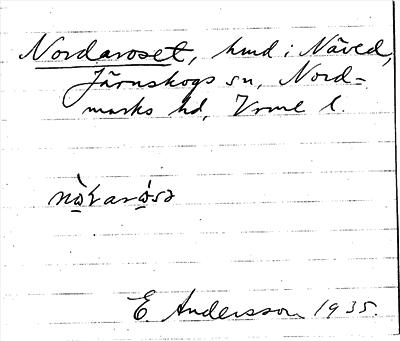 Nordaroset, hmd i Näved,
Järnskogs sn, Nord=
marks hd, Vrml l.
E. Andersson 1935.